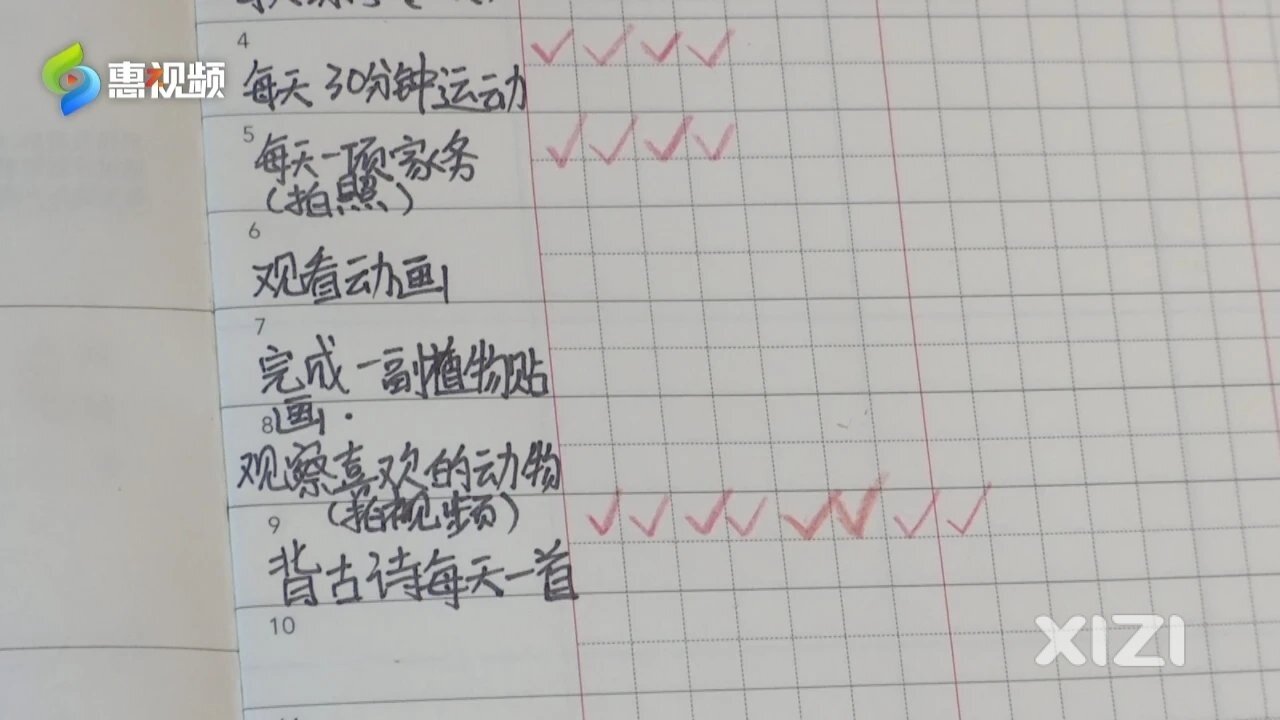 惠视频
4
每天30分钟运动
5
每天一项家务
(拍照)
6
观看动画
7
完成一副植物贴
画.
8
观察喜欢的动物
(拍视频)
9
背古诗每天一首
10
XIZI